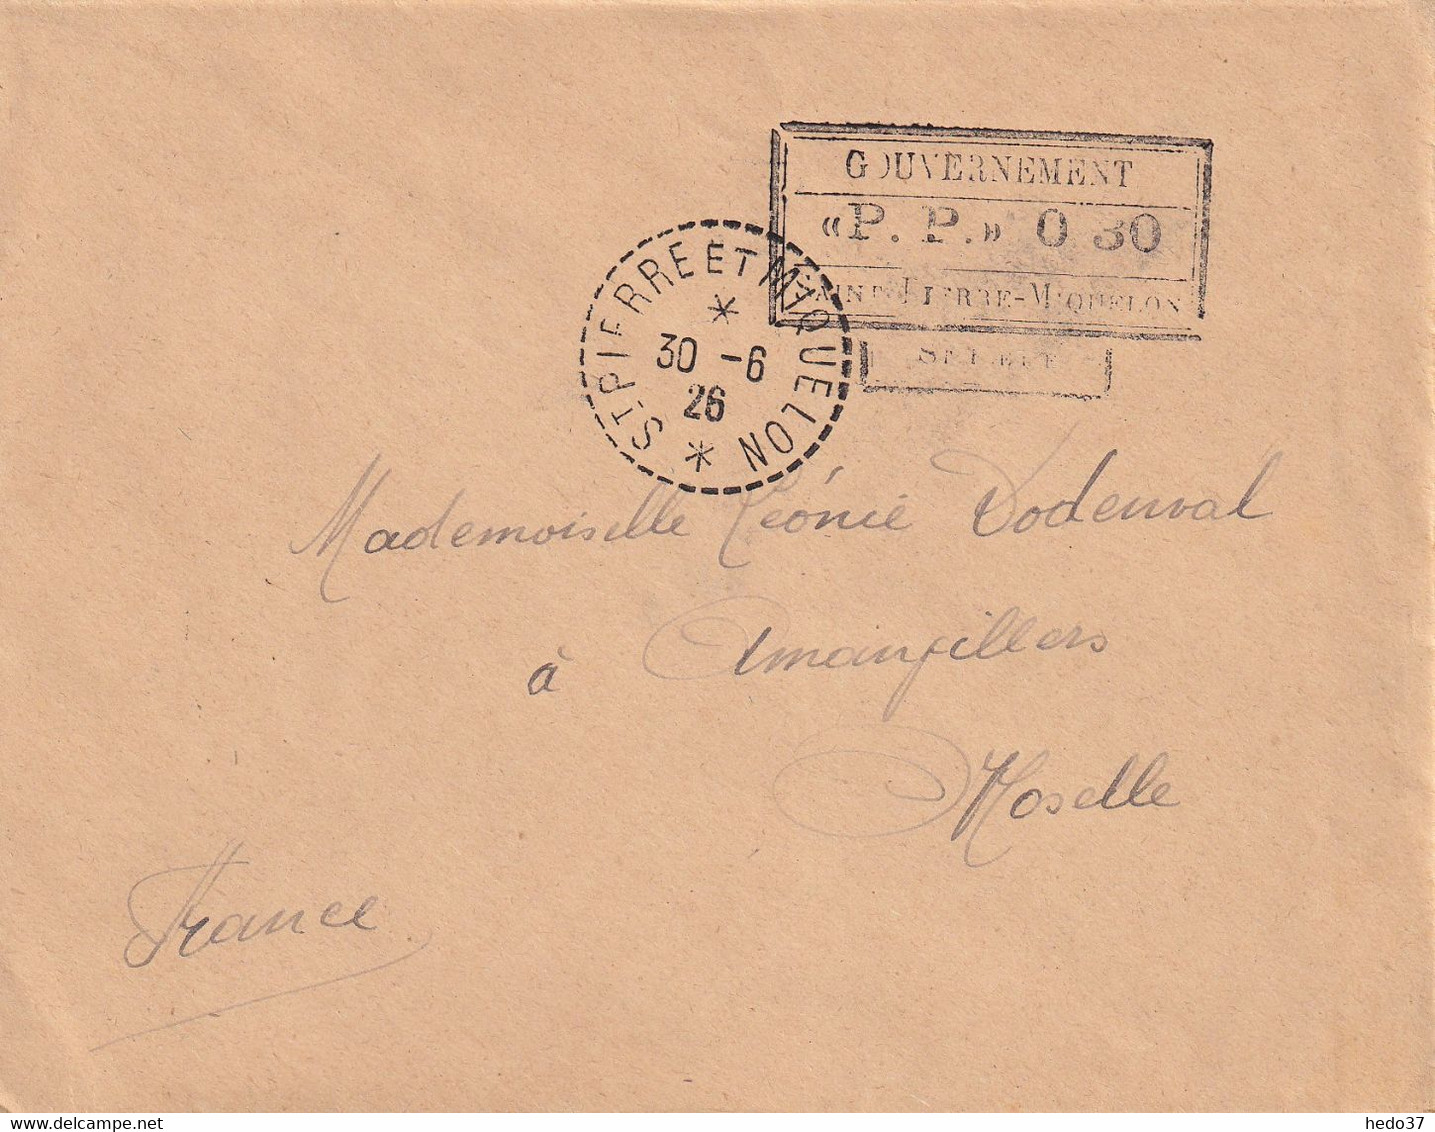 GOUVERNEMENT
«P. P.» 0 30
SAINT-PIERRE-MIQUELON
ST PIERRE ET MIQUELON
30 -6
26
Mademoiselle Léonie Dodenval
à Amanvillers
Moselle
France
delcampe.net
hedo37